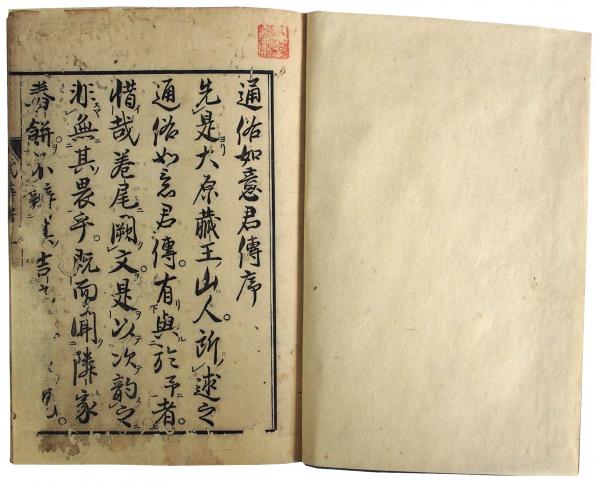 通俗如意君傳序
先是大原藏王山人所述之
通俗如意君傳有與於予者
惜哉巻尾闕文是以次韵之
非無其畏乎既而聞隣家
春餅不辞